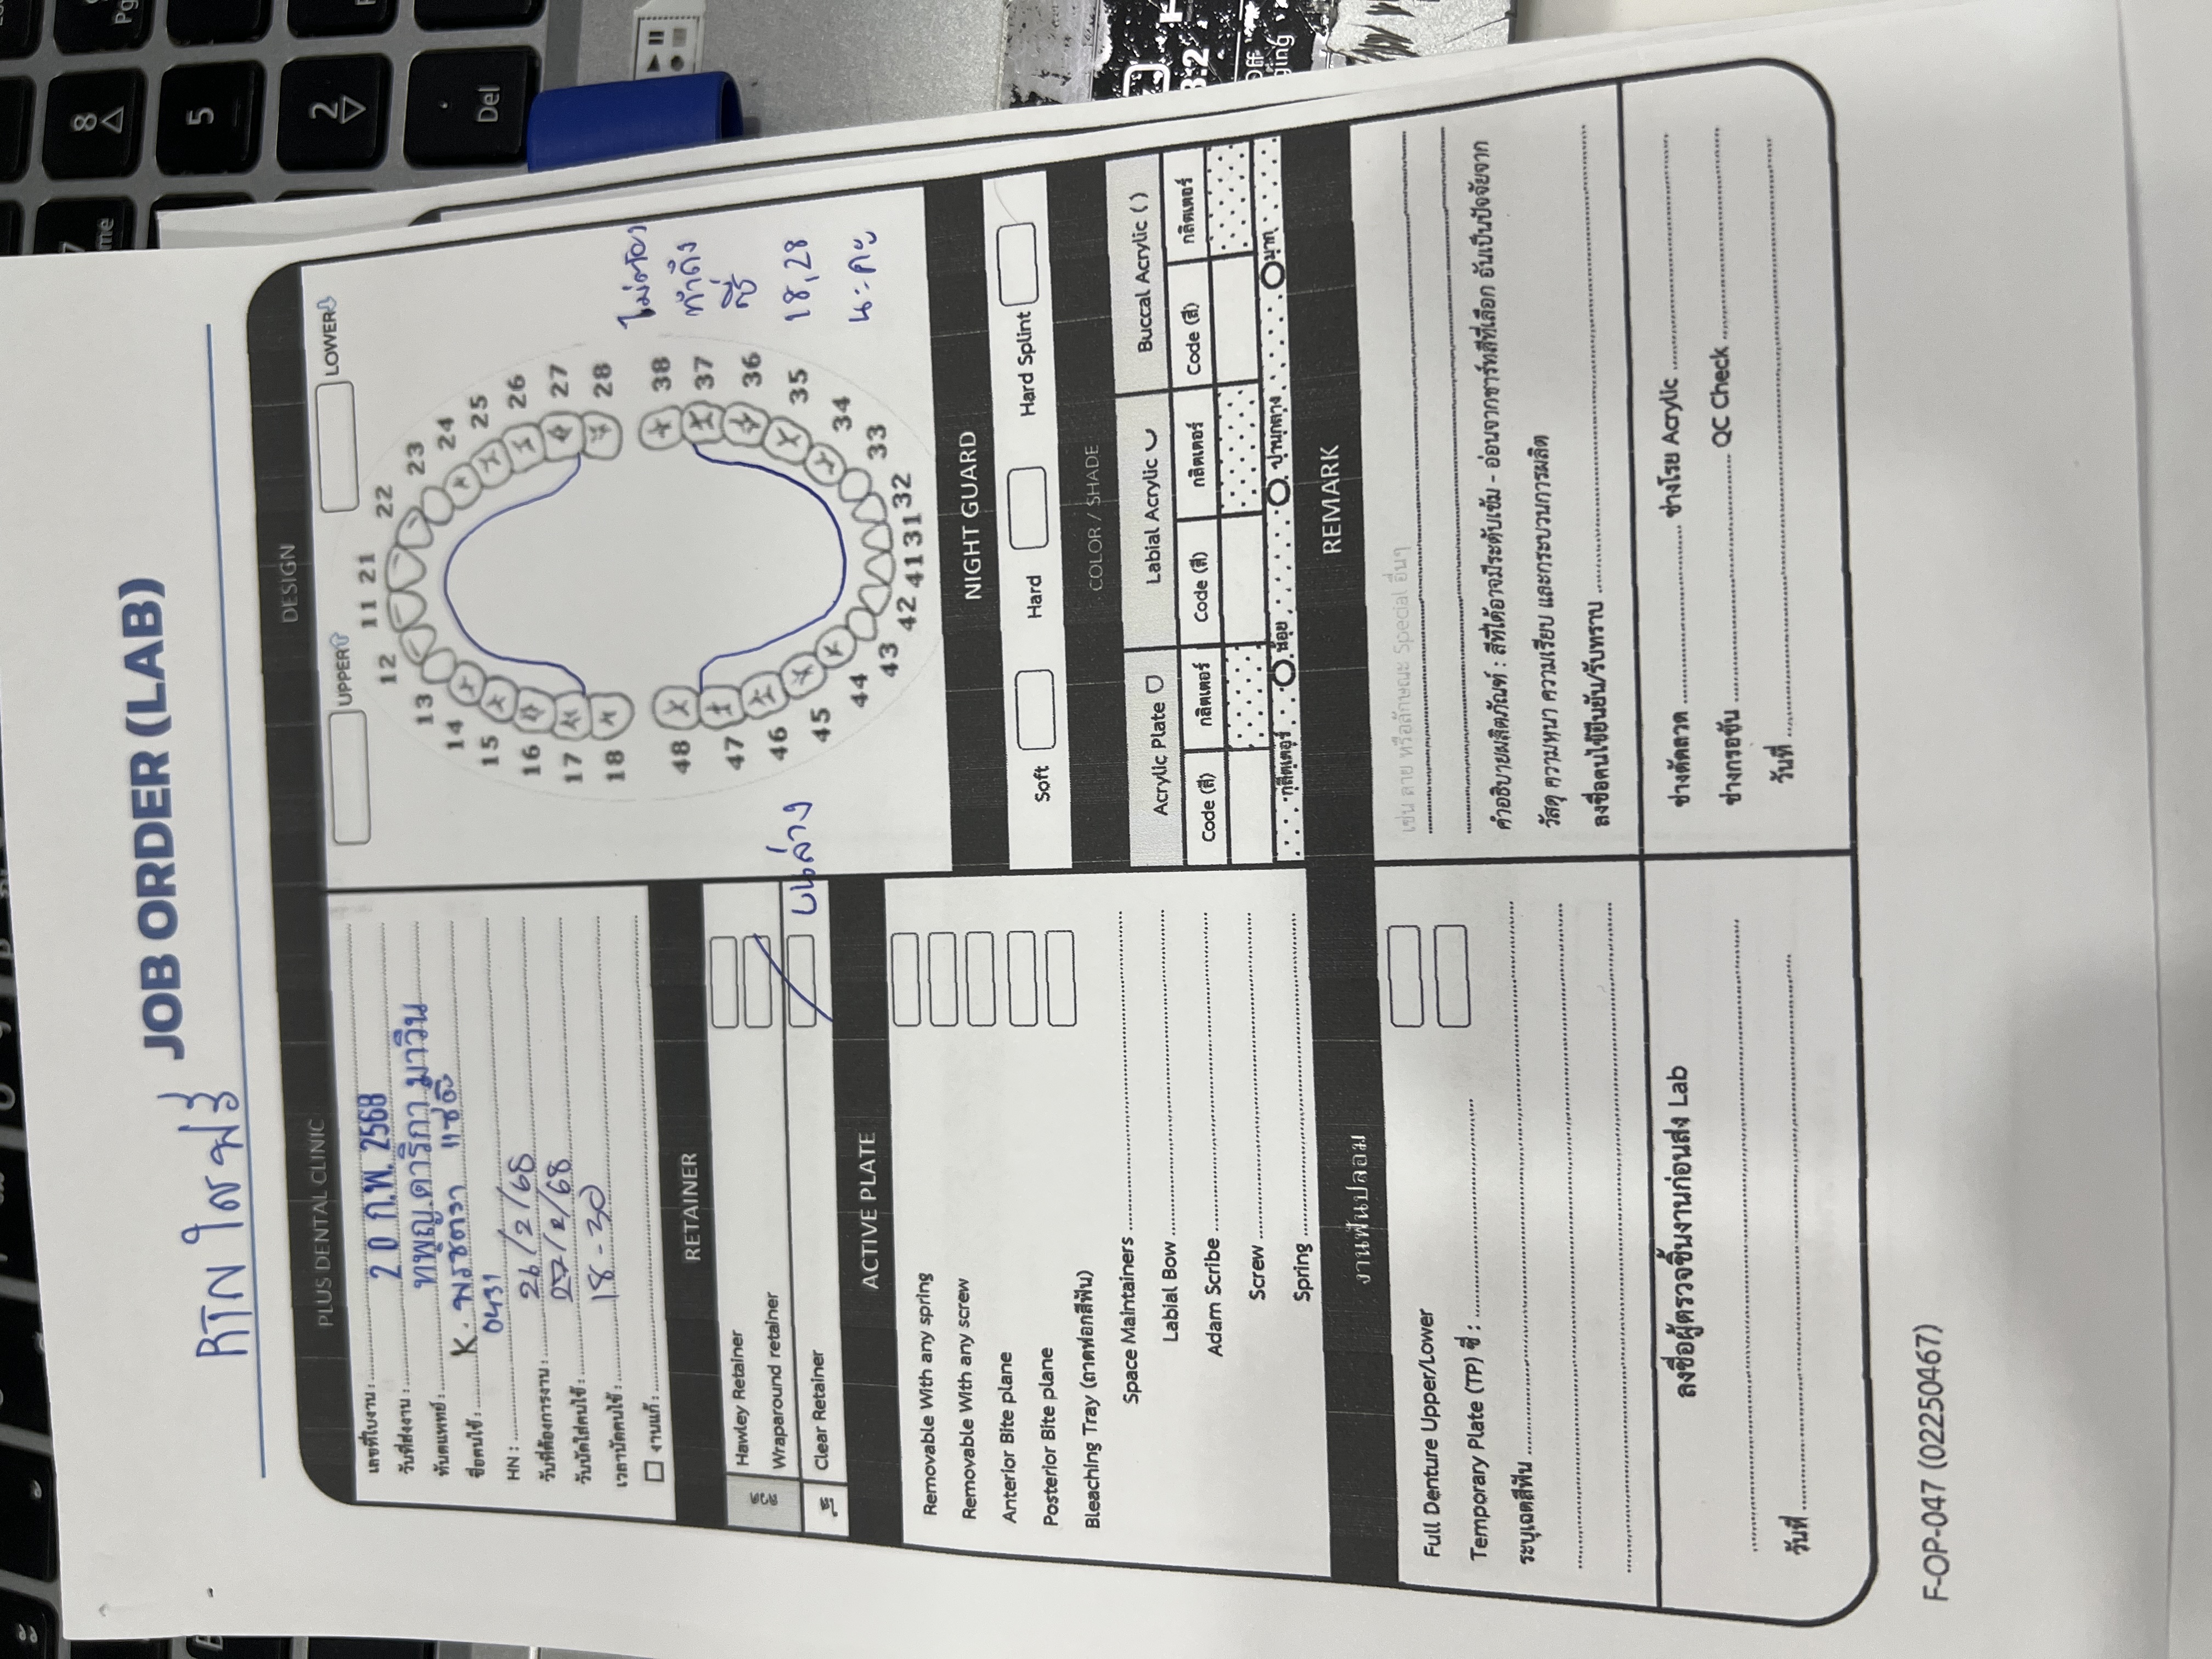 RTN ใสฟรี
JOB ORDER (LAB)
PLUS DENTAL CLINIC
เลขที่ใบงาน :
วันที่ส่งงาน : 20 ก.พ. 2568
ทันตแพทย์ : ทพญ.ดาริกา มาวิน
ชื่อคนไข้ : K. พรชตรา แซ่ตั้ง
HN : 0431
วันที่ต้องการงาน : 26/2/68
วันนัดใส่คนไข้ : 27/2/68
เวลานัดคนไข้ : 18-30
งานแก้ :
RETAINER
Hawley Retainer
Wraparound retainer
Clear Retainer บนล่าง
ACTIVE PLATE
Removable With any spring
Removable With any screw
Anterior Bite plane
Posterior Bite plane
Bleaching Tray (ถาดฟอกสีฟัน)
Space Maintainers
Labial Bow
Adam Scribe
Screw
Spring
งานฟันปลอม
Full Denture Upper/Lower
Temporary Plate (TP) ซี่ :
ระบุเฉดสีฟัน
ลงชื่อผู้ตรวจชิ้นงานก่อนส่ง Lab
วันที่
DESIGN
UPPER LOWER
11 21
12 22
13 23
14 24
15 25
16 26
17 27
18 28
48 38
47 37
46 36
45 35
44 34
43 33
42 41 31 32
ไม่ต้อง
ทำถึง
ซี่
18, 28
นะคะ
NIGHT GUARD
Soft Hard Hard Splint
COLOR / SHADE
Acrylic Plate Labial Acrylic Buccal Acrylic ( )
Code (สี) กลิตเตอร์ Code (สี) กลิตเตอร์ Code (สี) กลิตเตอร์
กลิตเตอร์ น้อย ปานกลาง มาก
REMARK
เช่น ลาย หรือลักษณะ Special อื่นๆ
คำอธิบายผลิตภัณฑ์ : สีที่ได้อาจมีระดับเข้ม - อ่อนจากชาร์ทสีที่เลือก อันเป็นปัจจัยจาก
วัสดุ ความหนา ความเรียบ และกระบวนการผลิต
ลงชื่อคนไข้ยืนยัน/รับทราบ
ช่างดัดลวด ช่างโรย Acrylic
ช่างกรอขัน QC Check
วันที่
F-OP-047 (02250467)